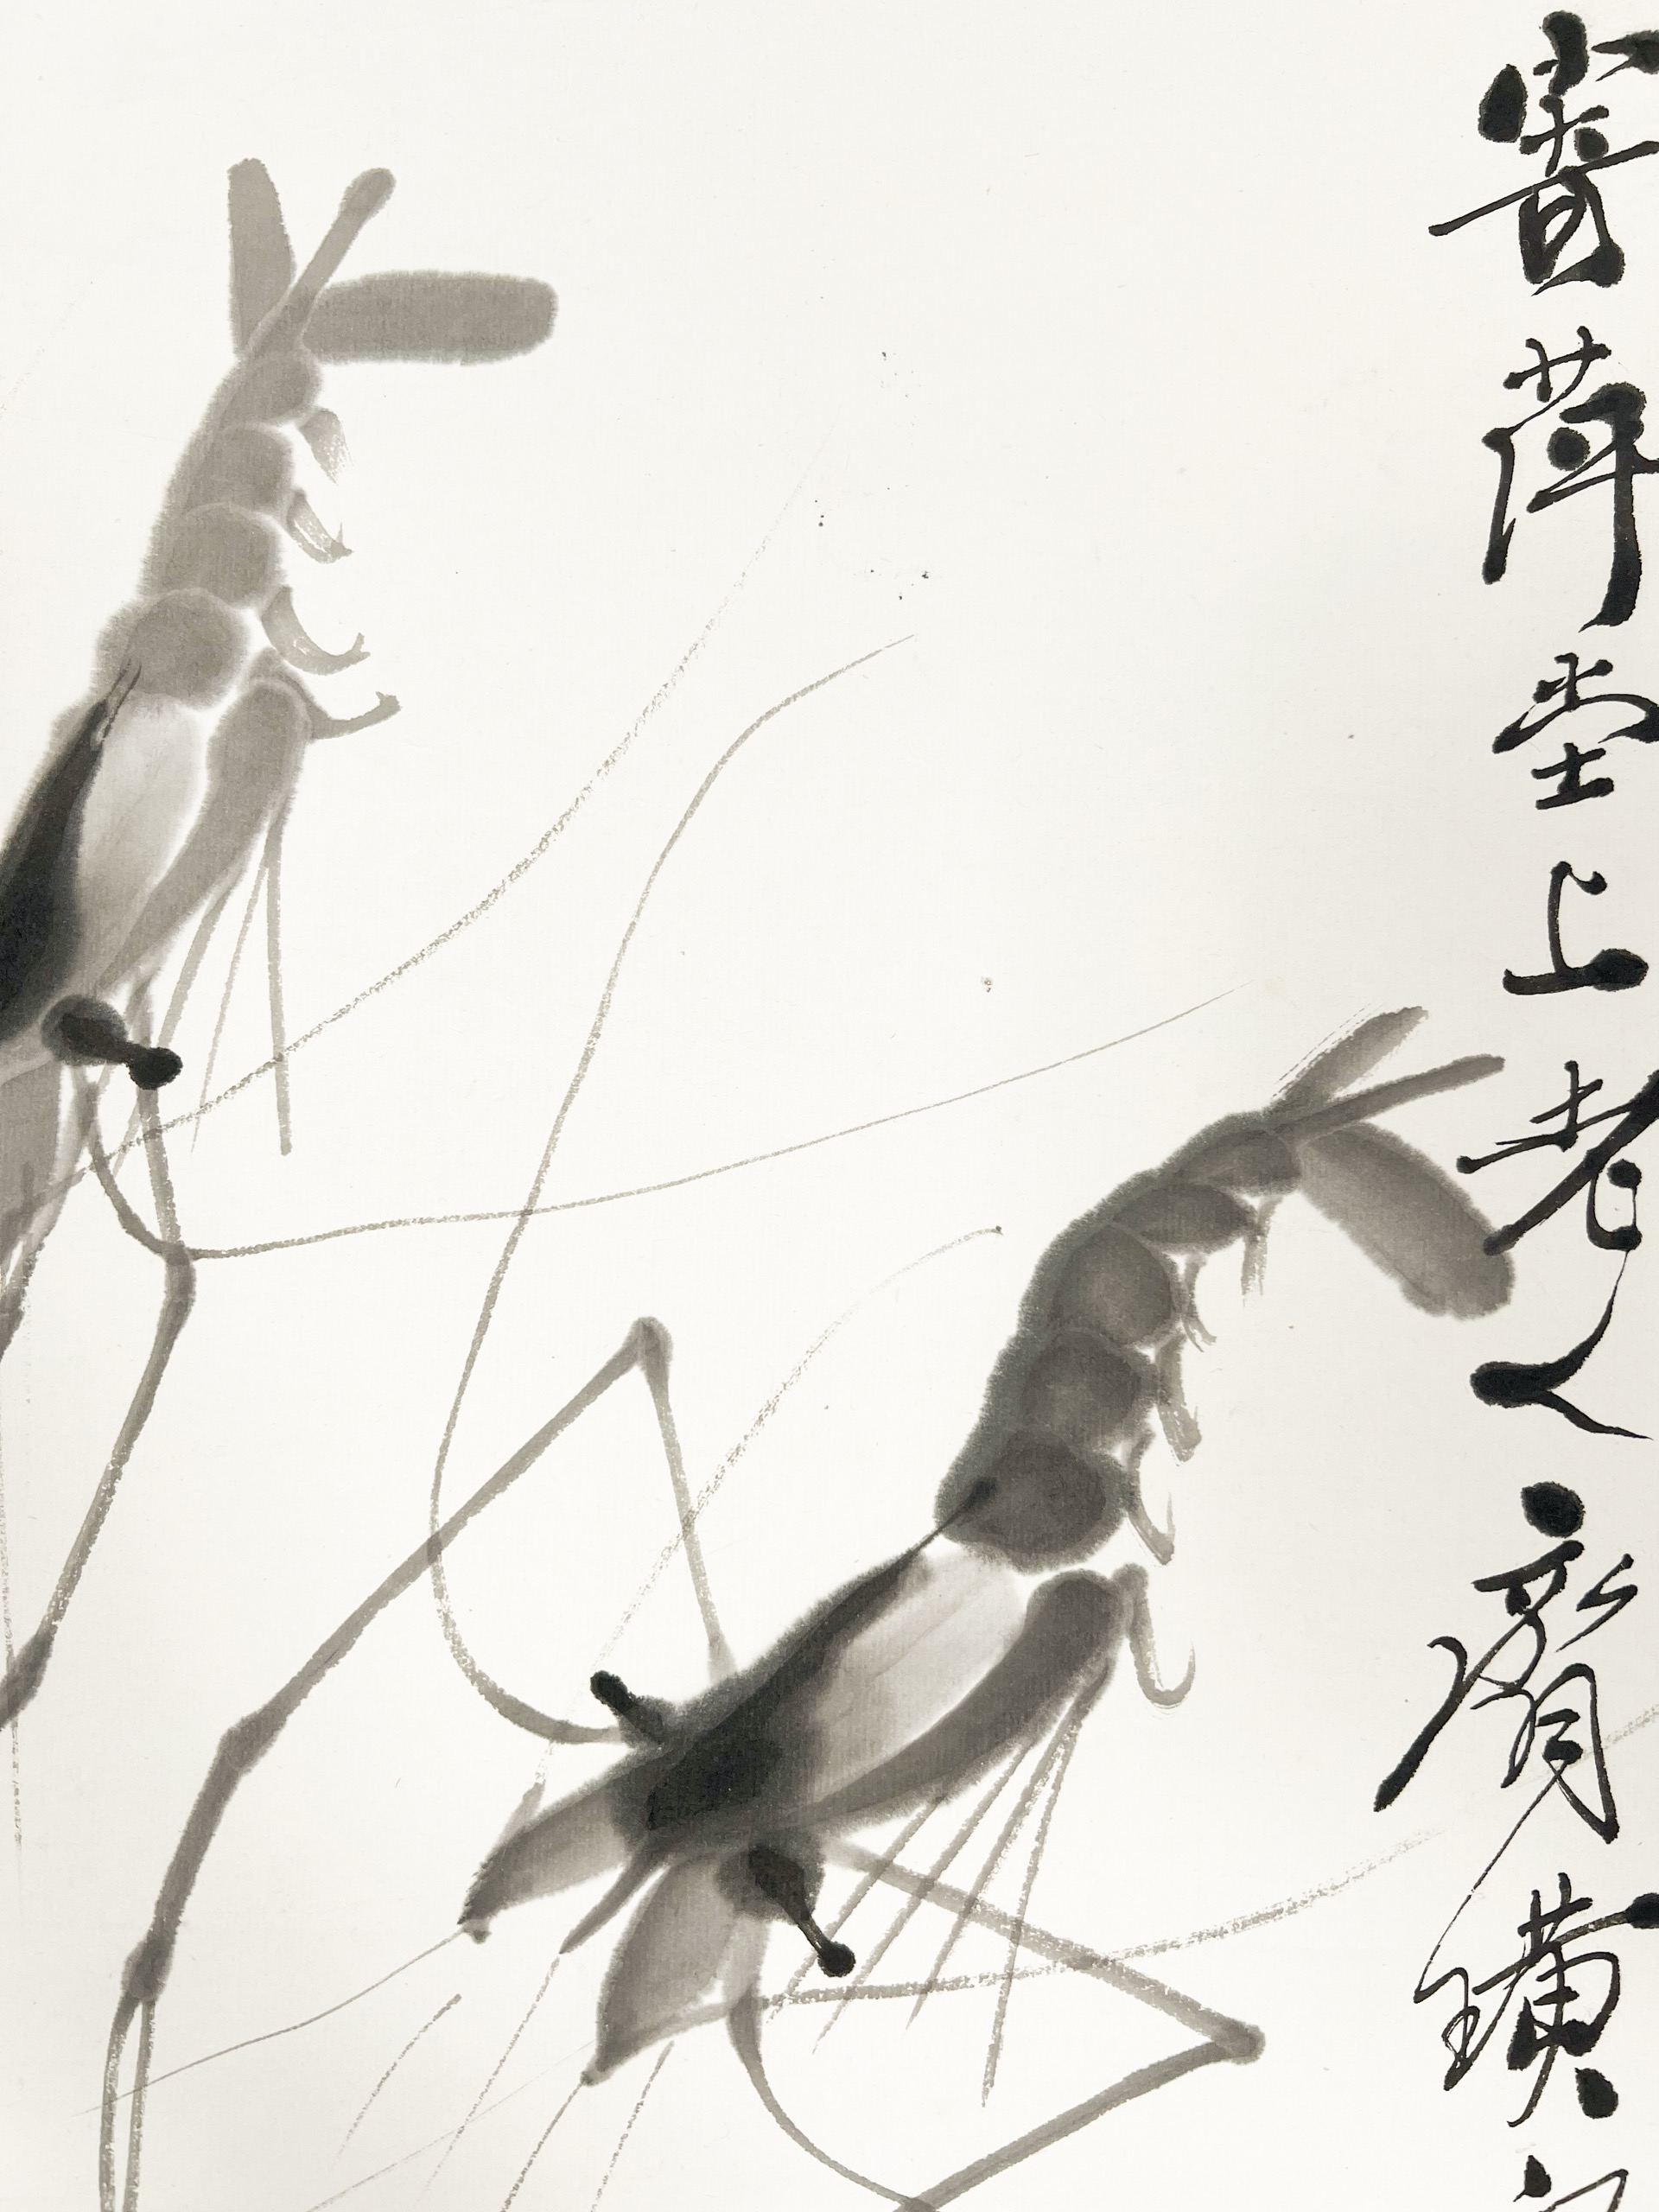 寄萍堂上老人齊璜